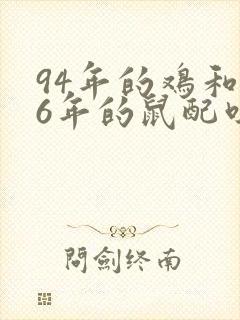 94年的鸡和
6年的鼠配
問劍终南